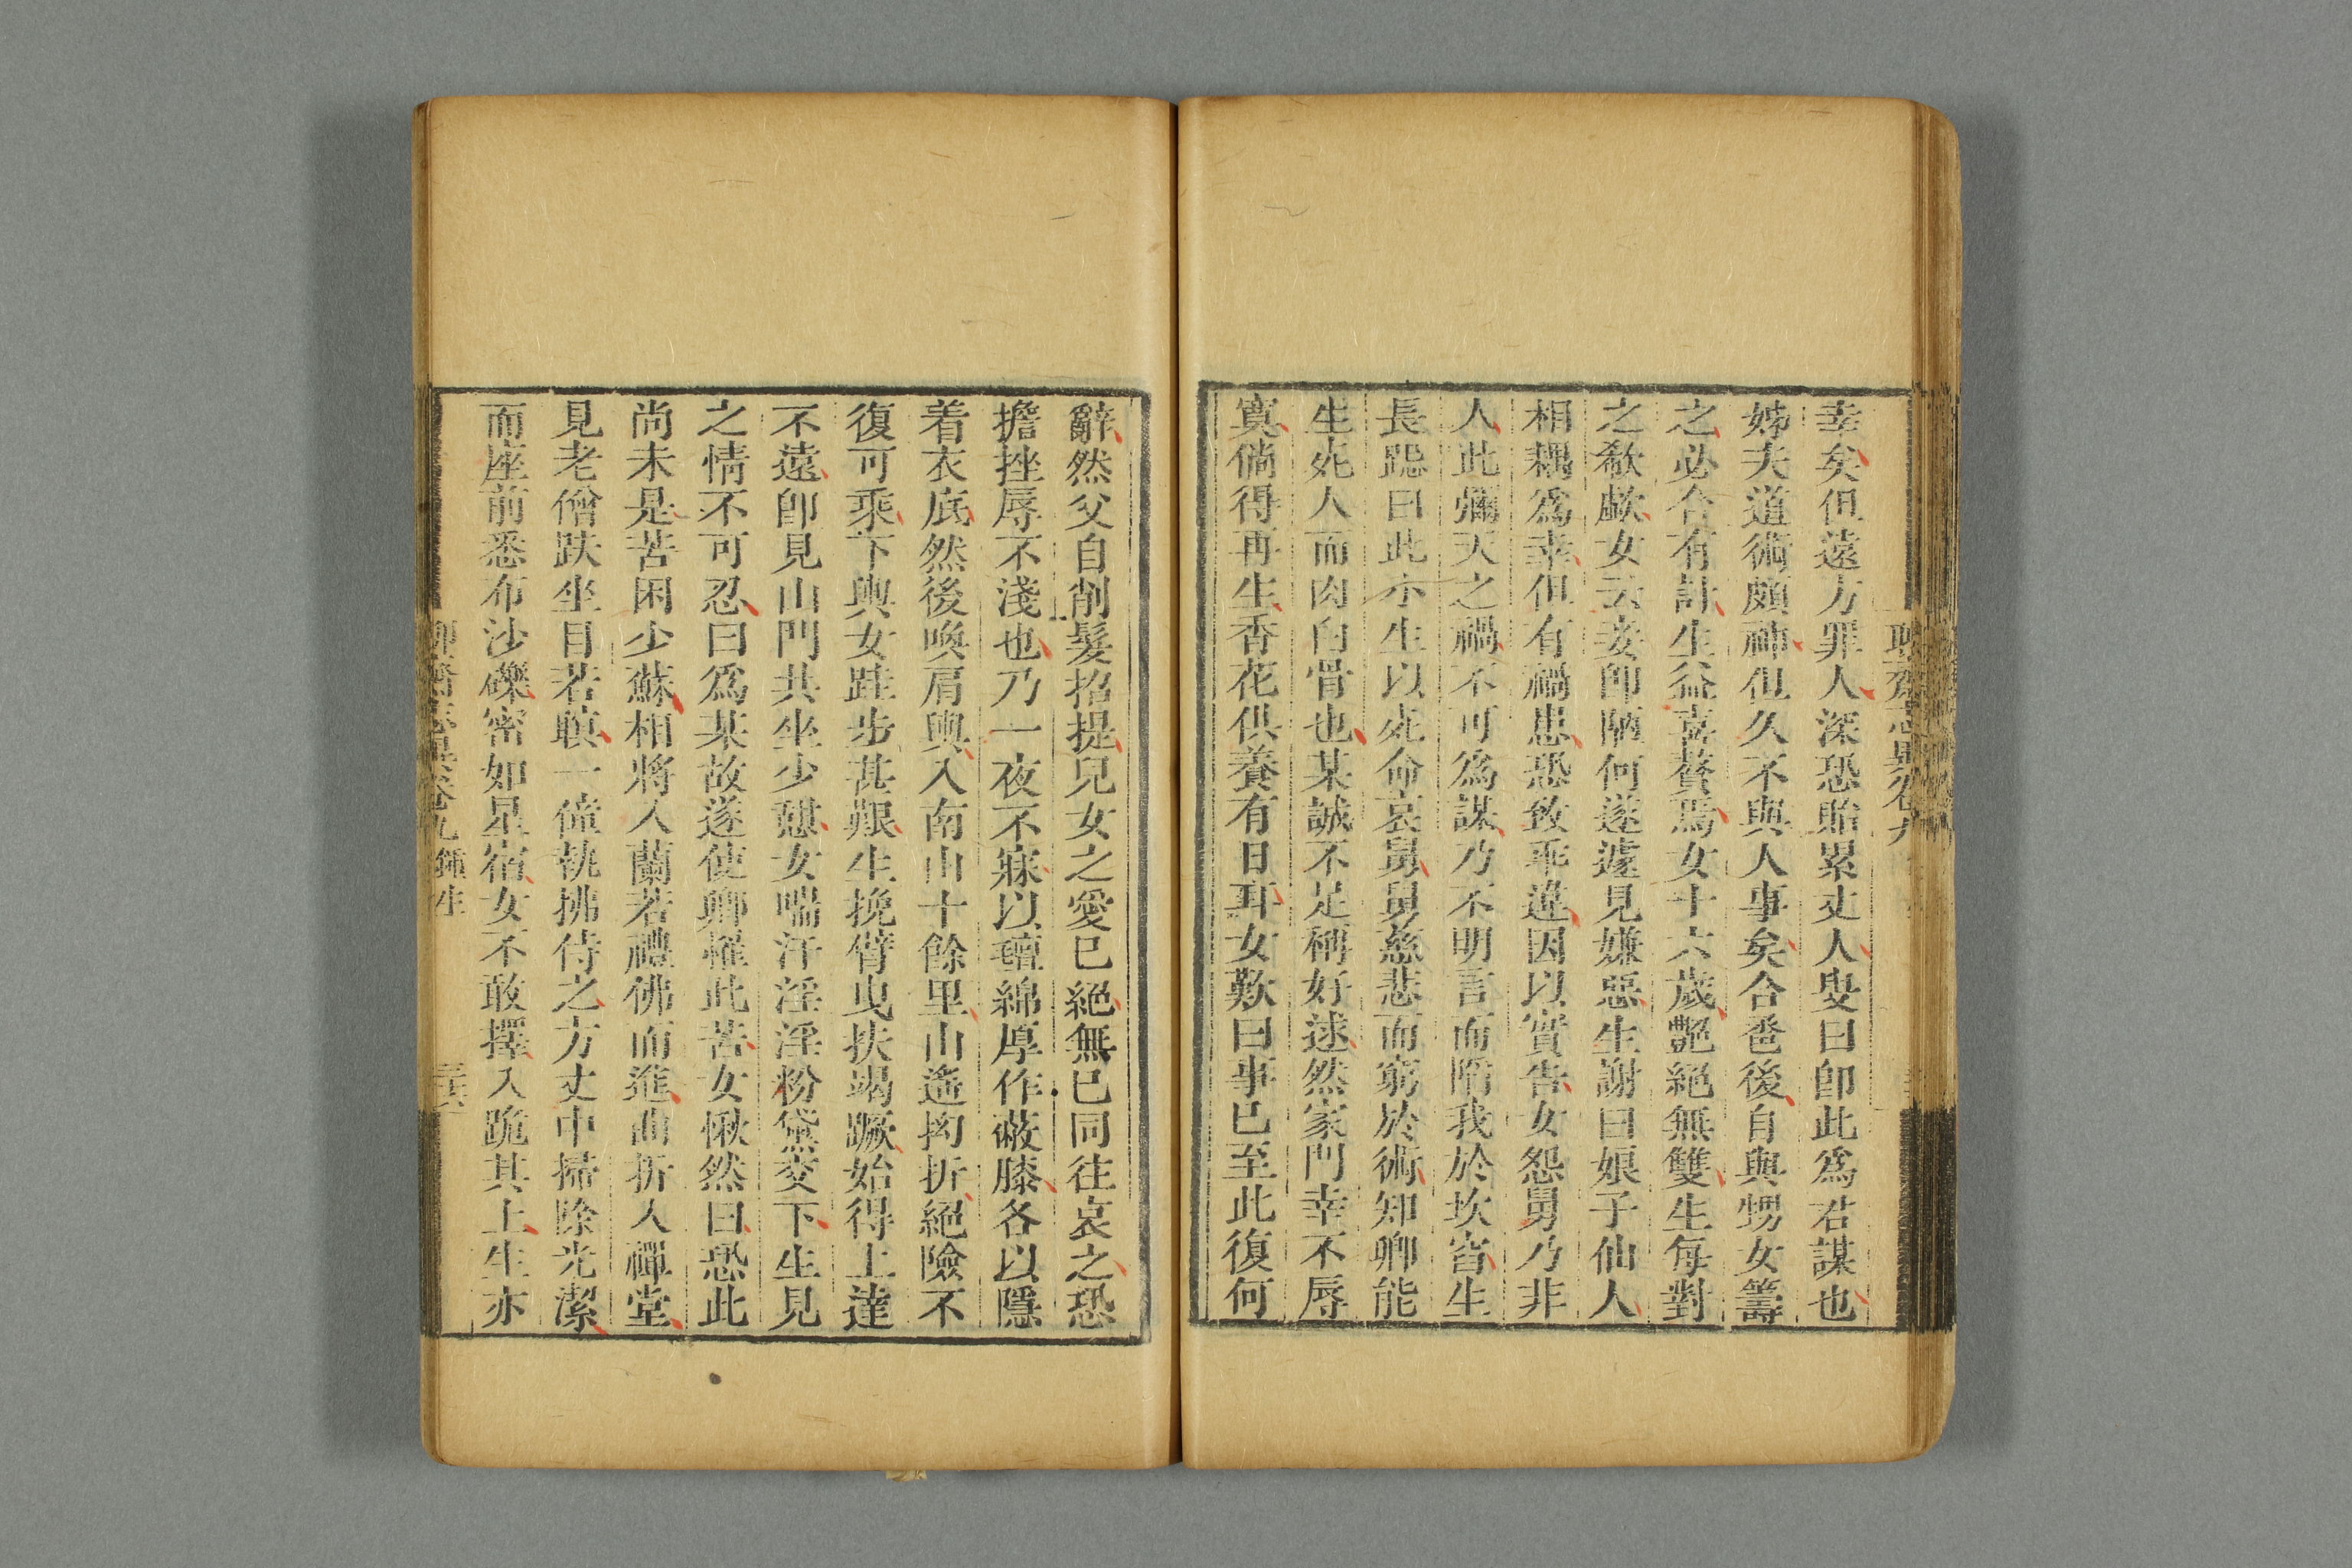 幸矣但遠方罪人深恐貽累丈人叟曰卽此爲君謀也
姊夫道術頗神但久不與人事矣合巹後自與甥女籌
之必合有計生益喜贅焉女十六歲艷絕無雙生每對
之欷歔女云妾卽陋何遂遽見嫌惡生謝曰娘子仙人
相耦爲幸但有禍患恐致乖違因以實告女怨舅乃非
人此彌天之禍不可爲謀乃不明言而陷我於坎窞生
長跽曰此小生以死命哀舅舅慈悲而窮於術知卿能
生死人而肉白骨也某誠不足稱好逑然家門幸不辱
寞倘得再生香花供養有日耳女歎曰事已至此復何
辭然父自削髮招提兒女之愛已絕無已同往哀之恐
擔挫辱不淺也乃一夜不寐以氊綿厚作蔽膝各以隱
着衣底然後喚肩輿入南山十餘里山逕拗折絕險不
復可乘下輿女跬步甚艱生挽臂曳扶竭蹶始得上達
不遠卽見山門共坐少憇女喘汗淫淫粉黛交下生見
之情不可忍曰爲某故遂使卿罹此苦女愀然曰恐此
尚未是苦困少蘇相將入蘭若禮佛而進曲折入禪堂
見老僧趺坐目若瞑一僮執拂侍之方丈中掃除光潔
而座前悉布沙礫密如星宿女不敢擇入跪其上生亦
卷九 鍾生